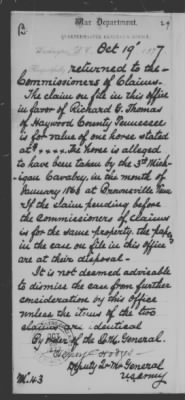 War Department,
QUARTERMASTER GENERAL'S OFFICE,
Washington, D. C. Oct 19 1877
Respectfully returned to the
Commissioners of Claims.
The claim on file in this office
in favor of Richard G. Thomas
of Haywood County Tennessee
is for value of one horse stated
at $ The horse is alleged
to have been taken by the 3rd Mich-
igan Cavalry, in the month of
January 1863 at Brownsville Tenn
If the claim pending before
the Commissioners of claims
is for the same property, the papers
in the case on file in this office
are at their disposal-
It is not deemed advisable
to dismiss the case from further
consideration by this office
unless the items of the two
claims are identical
By order of the Q.M. General.
Deputy Qr Mr General
U.S. Army